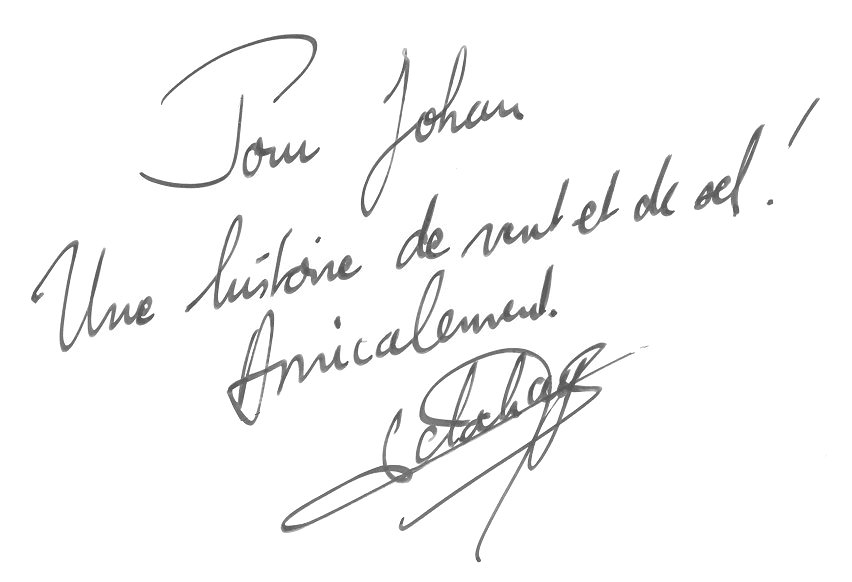 Pour Johan
Une histoire de vent et de sel !
Amicalement.